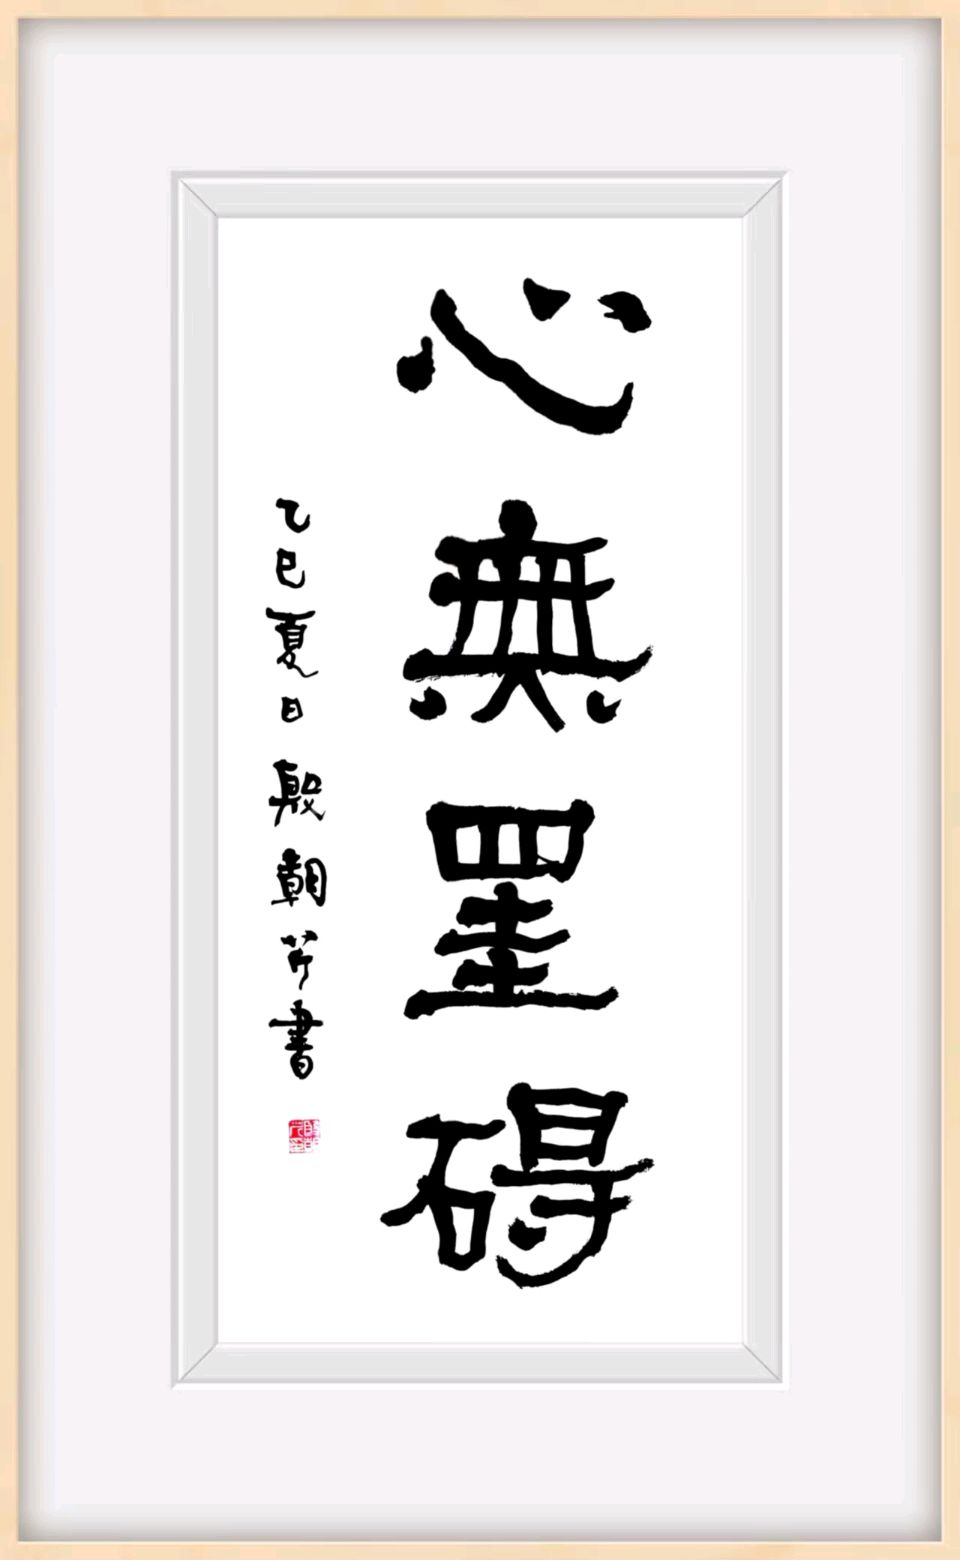 心無罣碍
乙巳夏日 殷朝芹書